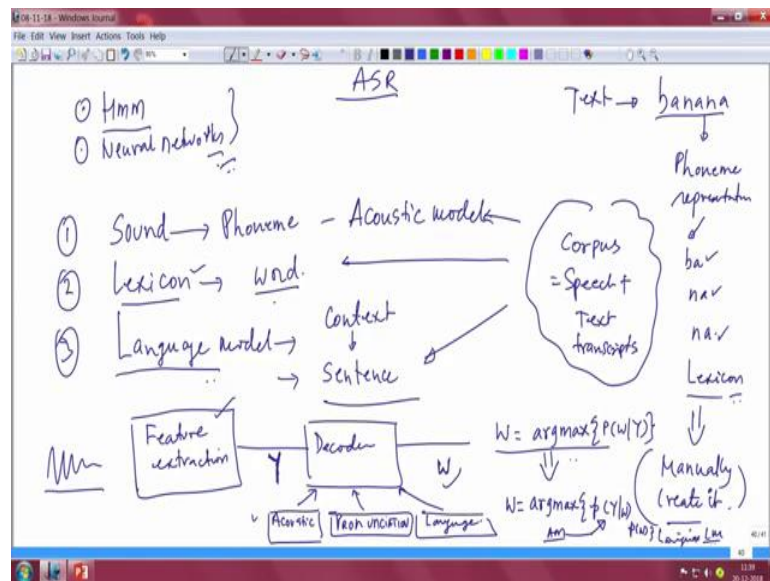 08-11-18 - Windows Journal
File Edit View Insert Actions Tools Help
ASR
① Hmm
① Neural networks
Text → banana
Phoneme
representation
ba ✓
na ✓
na ✓
Lexicon
⇓
(Manually
create it.)
① Sound → Phoneme - Acoustic model ←
② Lexicon ✓ → word.
③ Language model → Context
↓
→ Sentence
Corpus
= Speech +
Text
transcripts
Feature
extraction
Y
Decoder
W
Acoustic
PRONUNCIATION
Language.
W = argmax{P(W|Y)}
⇓
W = argmax{p(Y|W)
P(W)}
AM
LM
40/41
40
11:39
20-12-2018